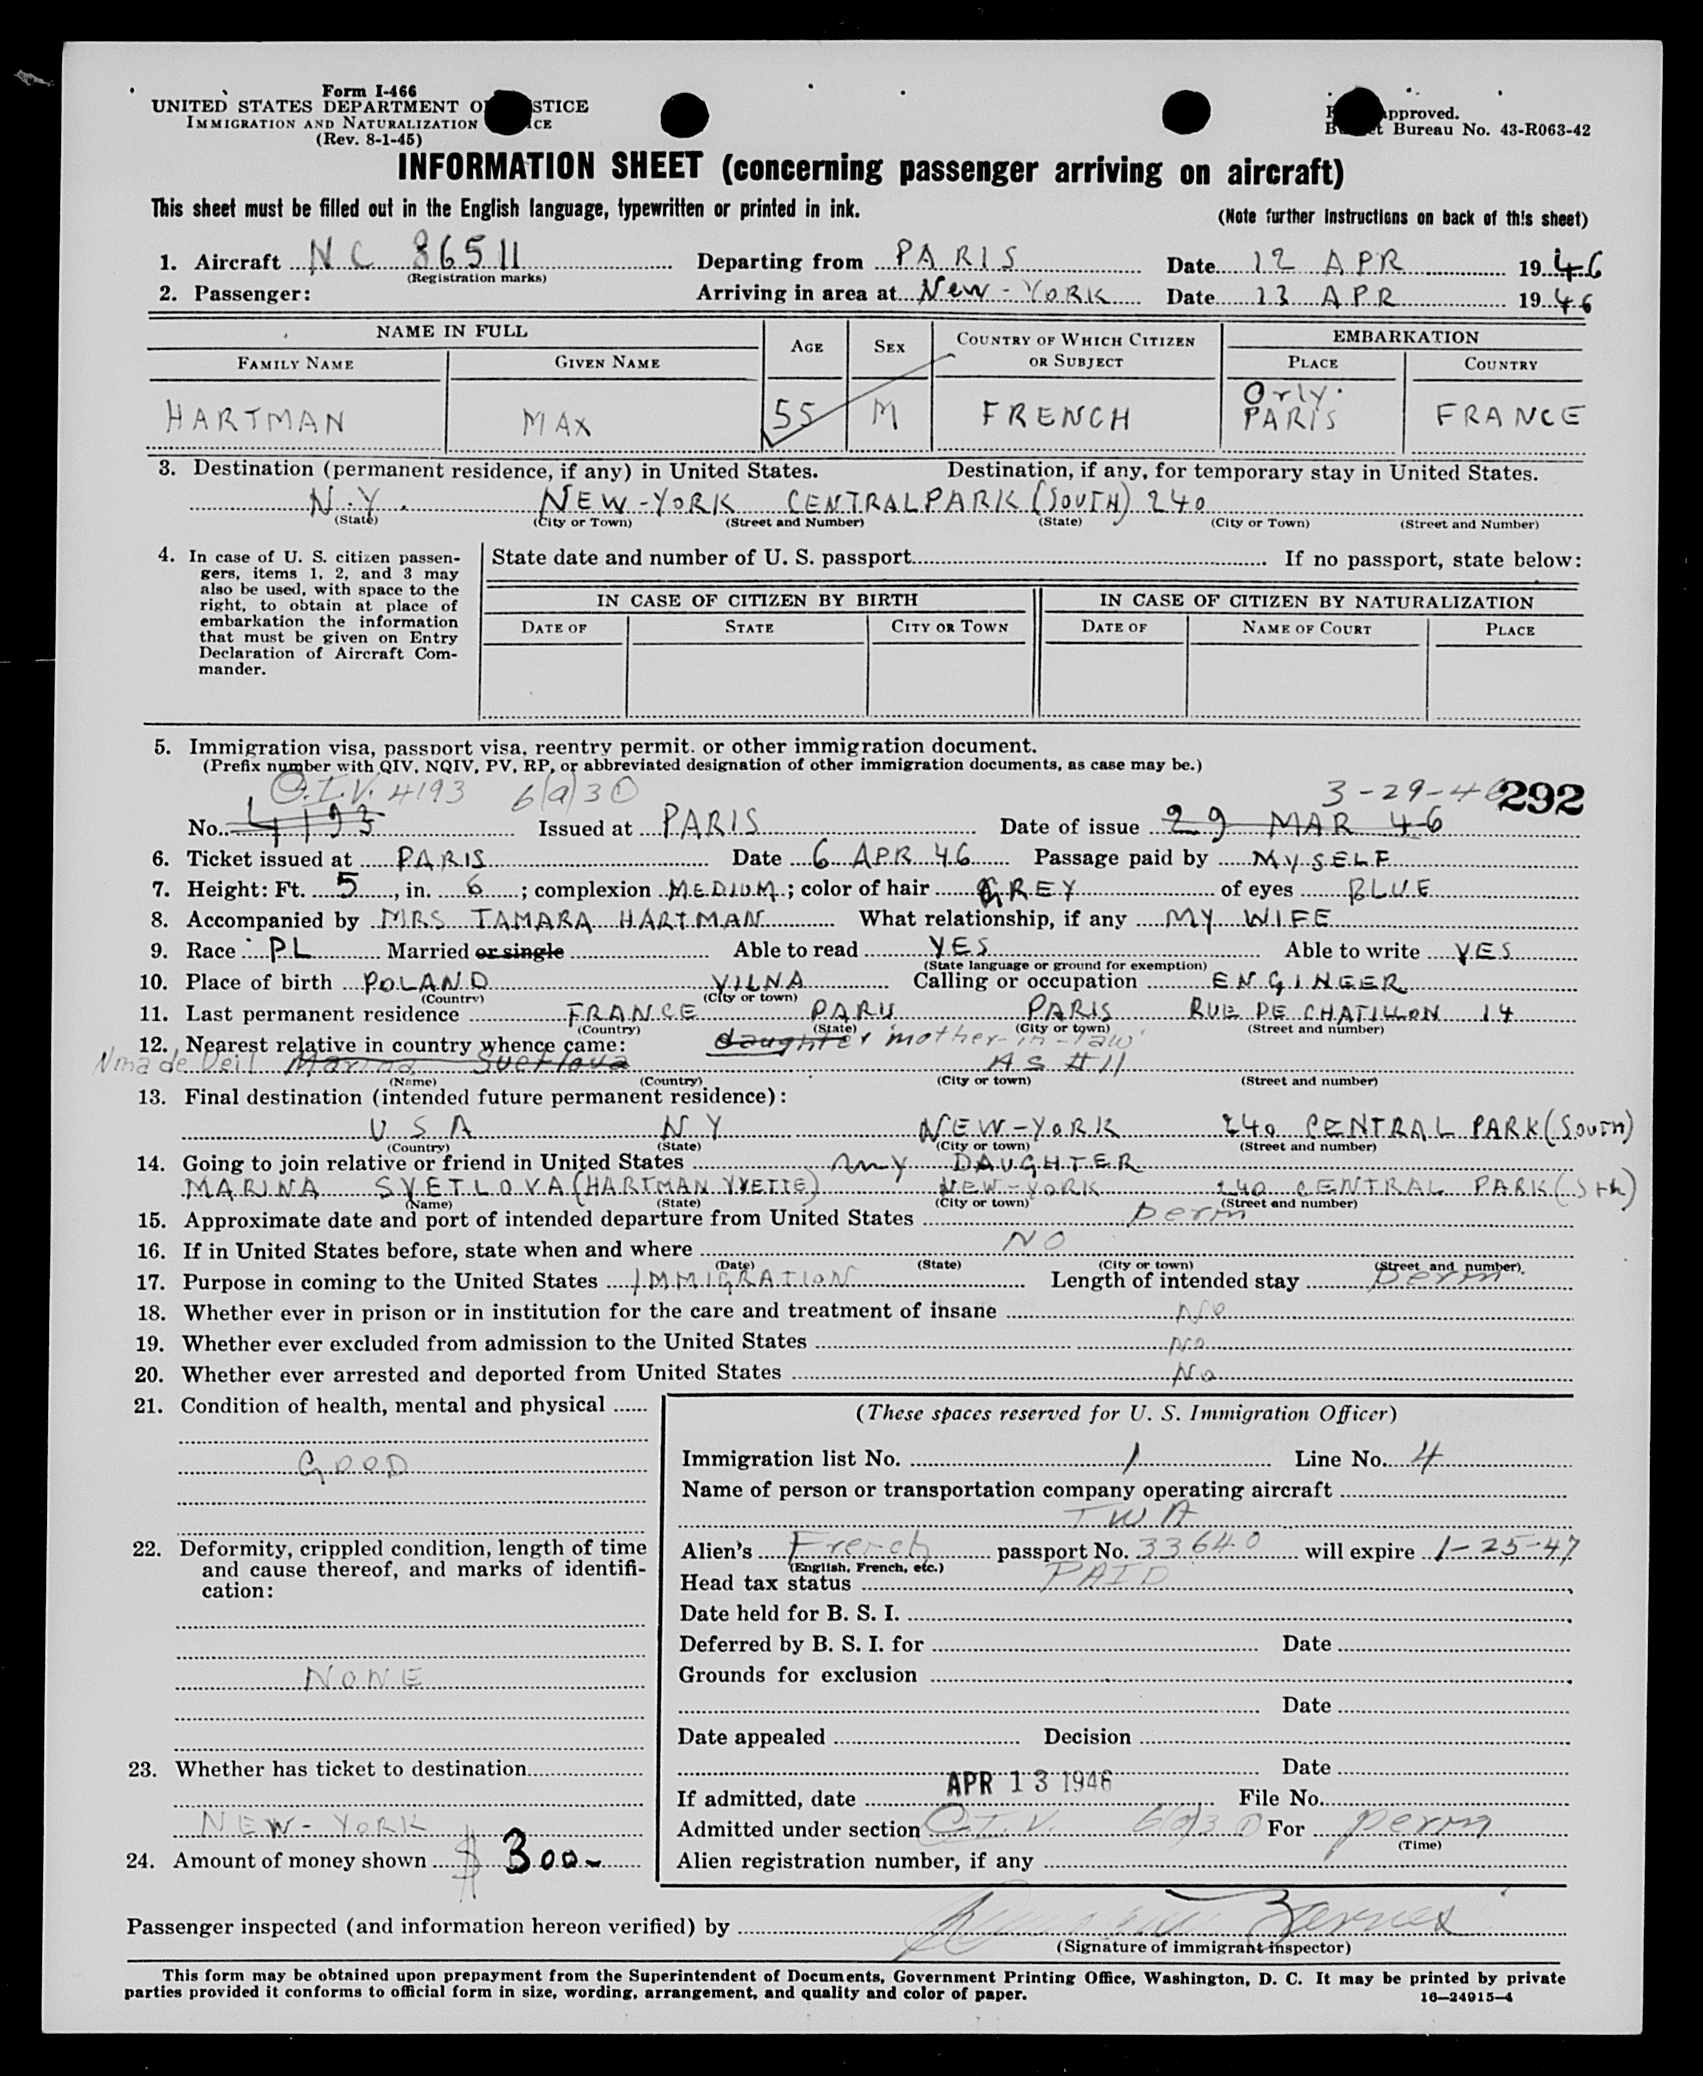 Form I-466
UNITED STATES DEPARTMENT OF JUSTICE
IMMIGRATION AND NATURALIZATION SERVICE
(Rev. 8-1-45)
Form approved.
Budget Bureau No. 43-R063-42
INFORMATION SHEET (concerning passenger arriving on aircraft)
This sheet must be filled out in the English language, typewritten or printed in ink.
(Note further instructions on back of this sheet)
1. Aircraft NC 86511 Departing from PARIS Date 12 APR 1946
(Registration marks)
2. Passenger: Arriving in area at New-YORK Date 13 APR 1946
NAME IN FULL AGE SEX COUNTRY OF WHICH CITIZEN OR SUBJECT EMBARKATION
FAMILY NAME GIVEN NAME PLACE COUNTRY
HARTMAN MAX 55 M FRENCH Orly. PARIS FRANCE
3. Destination (permanent residence, if any) in United States. Destination, if any, for temporary stay in United States.
N.Y. NEW-YORK CENTRALPARK (SOUTH) 240
(State) (City or Town) (Street and Number) (State) (City or Town) (Street and Number)
4. In case of U. S. citizen passen-
gers, items 1, 2, and 3 may
also be used, with space to the
right, to obtain at place of
embarkation the information
that must be given on Entry
Declaration of Aircraft Com-
mander.
State date and number of U. S. passport If no passport, state below:
IN CASE OF CITIZEN BY BIRTH IN CASE OF CITIZEN BY NATURALIZATION
DATE OF STATE CITY OR TOWN DATE OF NAME OF COURT PLACE
5. Immigration visa, passport visa, reentry permit, or other immigration document.
(Prefix number with QIV, NQIV, PV, RP, or abbreviated designation of other immigration documents, as case may be.)
Q.I.V. 4193 6(a)3 3-29-46 292
No. 4193 Issued at PARIS Date of issue 29 MAR 46
6. Ticket issued at PARIS Date 6 APR 46 Passage paid by MYSELF
7. Height: Ft. 5, in. 6; complexion MEDIUM; color of hair GREY of eyes BLUE
8. Accompanied by MRS TAMARA HARTMAN What relationship, if any MY WIFE
9. Race PL Married or single Able to read YES Able to write YES
(State language or ground for exemption)
10. Place of birth POLAND VILNA Calling or occupation ENGINEER
(Country) (City or town)
11. Last permanent residence FRANCE PARIS PARIS RUE DE CHATILLON 14
(Country) (State) (City or town) (Street and number)
12. Nearest relative in country whence came: daughter mother-in-law
Nina de Veil Marina Svetlova AS #11
(Name) (Country) (City or town) (Street and number)
13. Final destination (intended future permanent residence):
USA NY NEW-YORK 240 CENTRAL PARK (SOUTH)
(Country) (State) (City or town) (Street and number)
14. Going to join relative or friend in United States my DAUGHTER
MARINA SVETLOVA (HARTMAN YVETTE) NEW-YORK 240 CENTRAL PARK (Sth)
(Name) (State) (City or town) (Street and number)
15. Approximate date and port of intended departure from United States perm
16. If in United States before, state when and where NO
(Date) (State) (City or town) (Street and number)
17. Purpose in coming to the United States IMMIGRATION Length of intended stay perm
18. Whether ever in prison or in institution for the care and treatment of insane
19. Whether ever excluded from admission to the United States no
20. Whether ever arrested and deported from United States No
21. Condition of health, mental and physical
GOOD
22. Deformity, crippled condition, length of time
and cause thereof, and marks of identifi-
cation:
NONE
23. Whether has ticket to destination
NEW-YORK
24. Amount of money shown $ 300-
(These spaces reserved for U. S. Immigration Officer)
Immigration list No. 1 Line No. 4
Name of person or transportation company operating aircraft
TWA
Alien's French passport No. 33640 will expire 1-25-47
(English, French, etc.)
Head tax status PAID
Date held for B. S. I.
Deferred by B. S. I. for Date
Grounds for exclusion
Date
Date appealed Decision
Date
If admitted, date APR 13 1946 File No.
Admitted under section Q.I.V. 6(a)3 For perm
(Time)
Alien registration number, if any
Passenger inspected (and information hereon verified) by
(Signature of immigrant inspector)
This form may be obtained upon prepayment from the Superintendent of Documents, Government Printing Office, Washington, D. C. It may be printed by private
parties provided it conforms to official form in size, wording, arrangement, and quality and color of paper.
16—24915-4